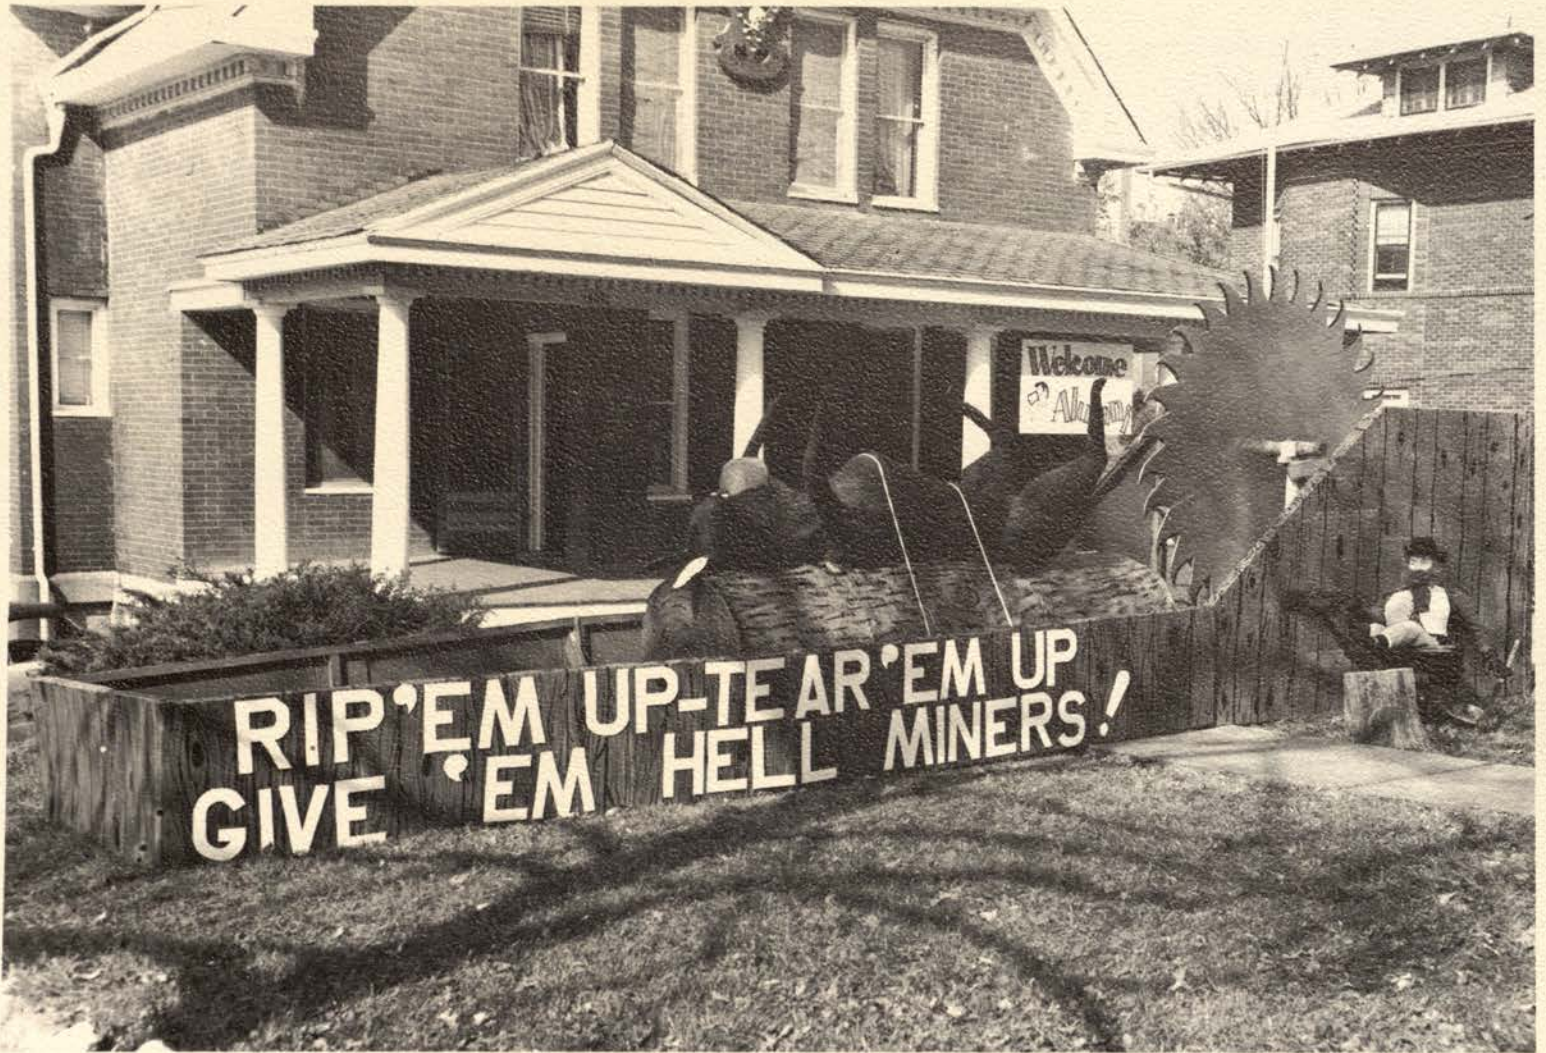 Welcome
Alumni
RIP 'EM UP-TEAR 'EM UP
GIVE 'EM HELL MINERS!